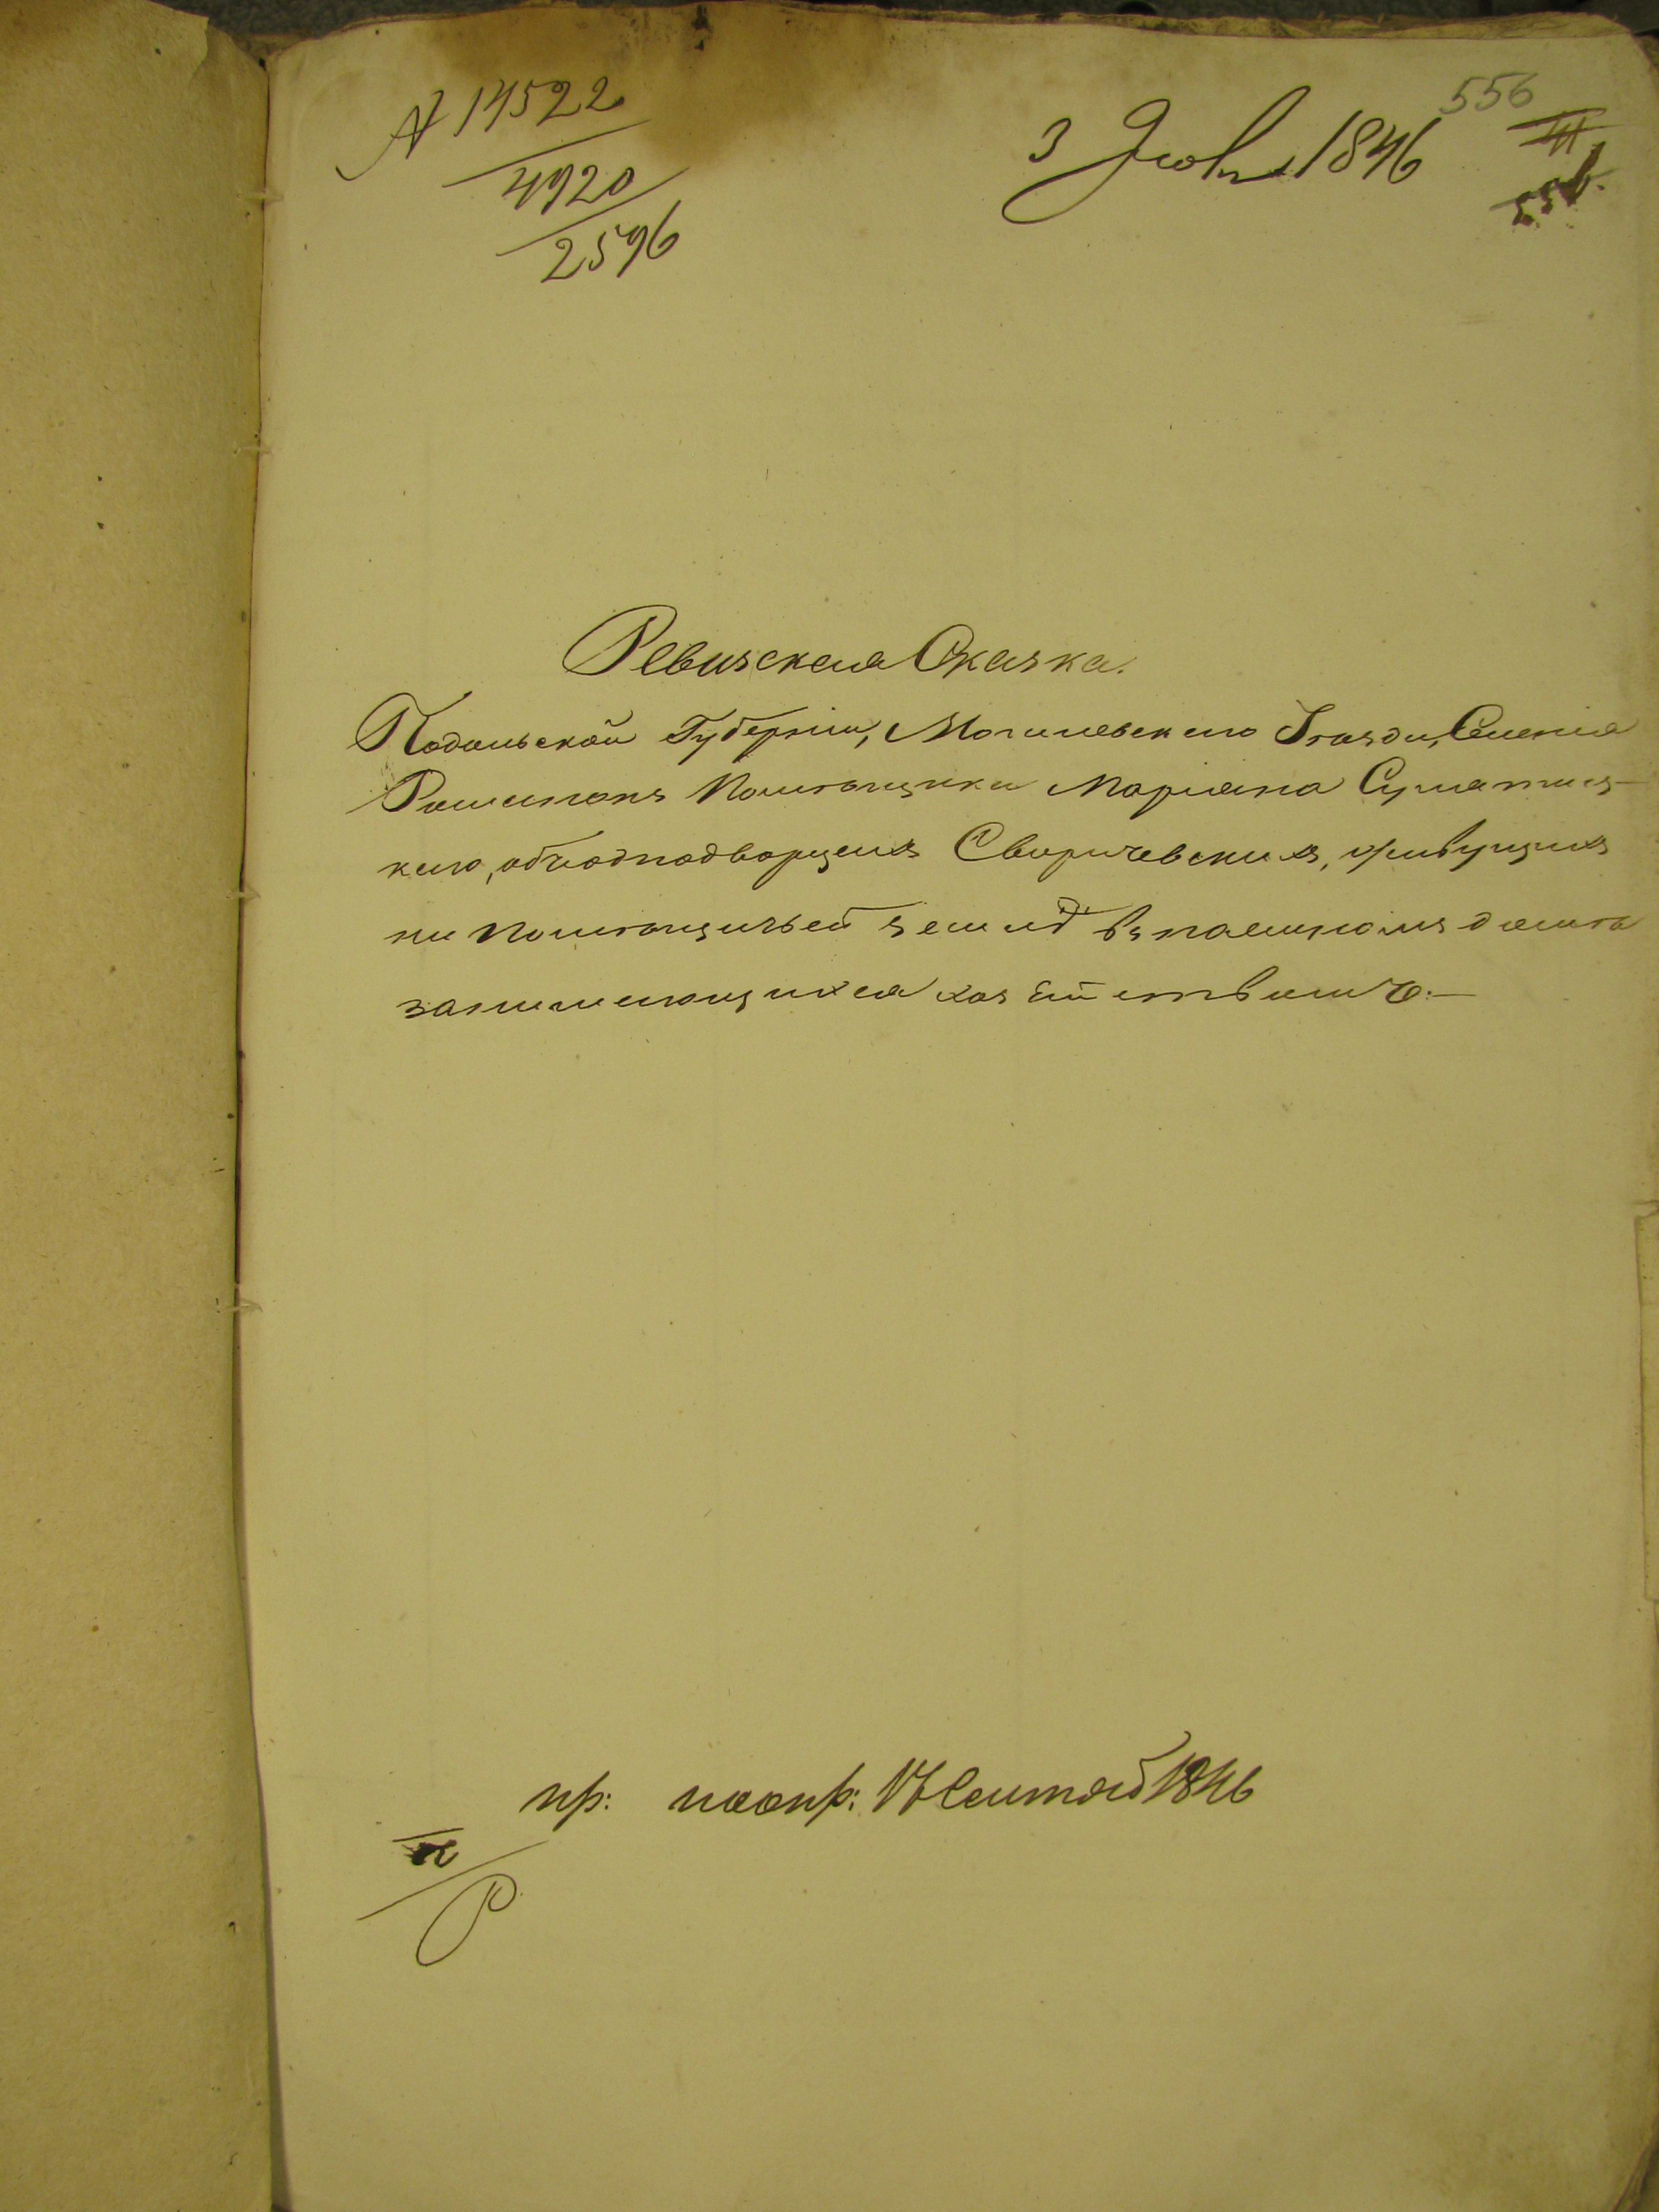 № 14522
4920
2596
3 Июля 1846
556
Ревизская Сказка.
Подольской Губерніи, Могилевскаго Уѣзда, Селенія
Помѣщика Маріяна Сулятиц-
каго, объ однодворцахъ Сваричевскихъ, живущихъ
на помѣщичьей землѣ въ наемномъ домѣ
занимающихся хозяйствомъ.—
пр: поопр: 17 Сентяб 1846